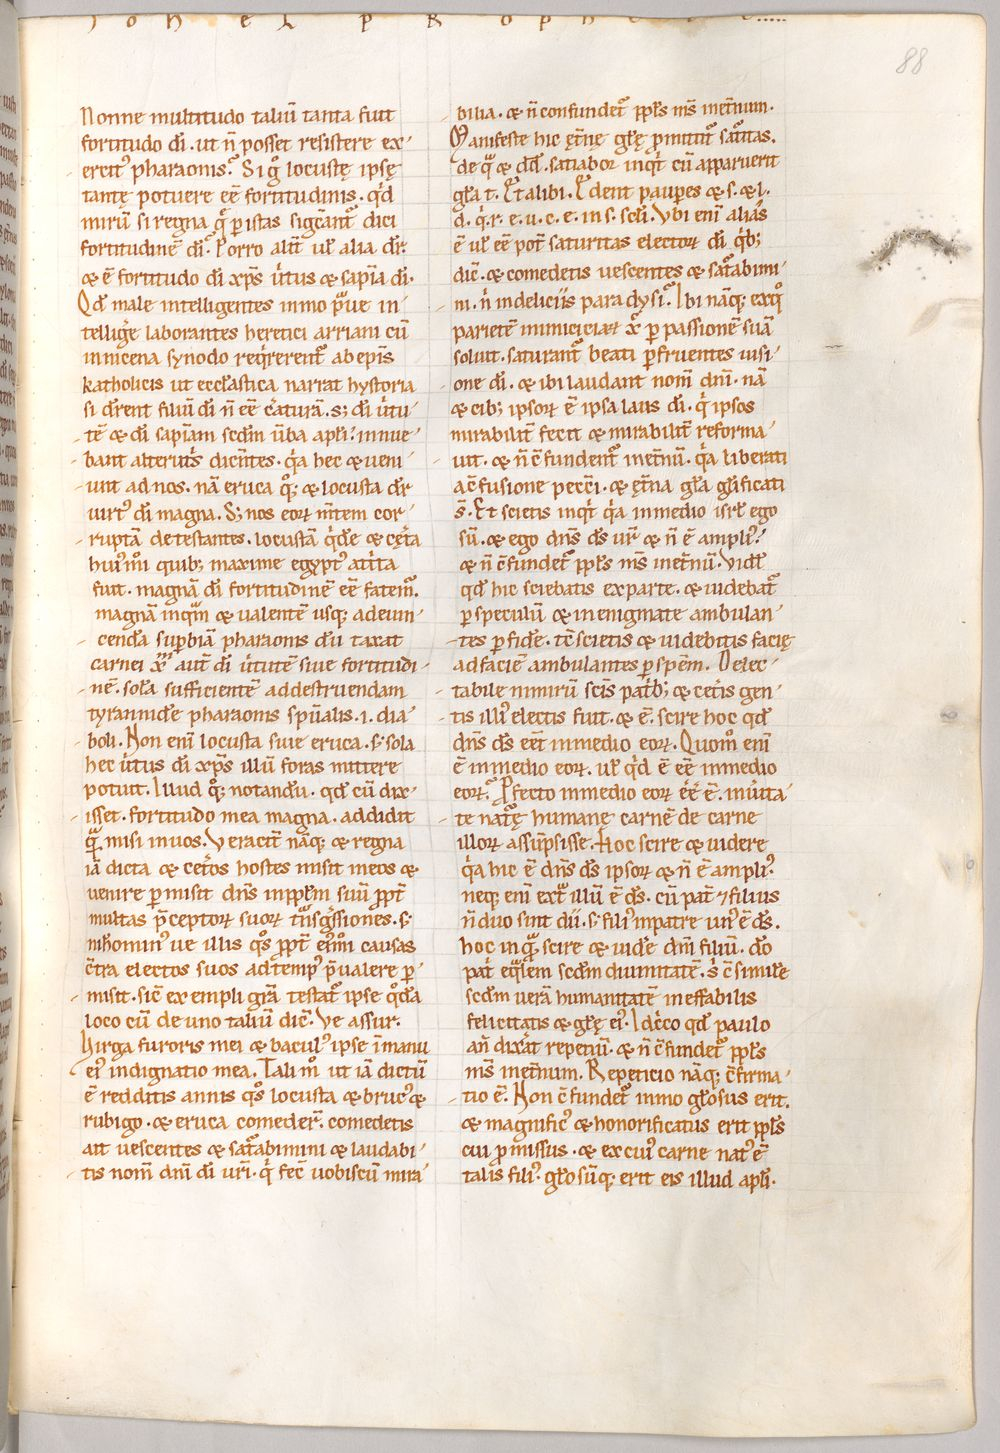 Johel propheta
88
Nonne multitudo taliū tanta fuit
fortitudo di̅. ut n̅ posset resistere ex-
ercit' pharaonis? Si g̊ locustę ipsę
tantę potuere ee̅ fortitudinis. qd̅
mirū si regna q̅ p istas sigc̅ant̅ dici
fortitudine̅ di̅? Porro alit̅ ul̅ alia dr̅.
& e̅ fortitudo di̅ xp̅s u̇tus & sap̅ia di̅.
Qd̅ male intelligentes immo p̅ue in-
tellige laborantes heretici arriani cū
in nicena synodo req̇rerent̅ ab ep̅is
katholicis ut eccl̅astica narrat hystoria
si dr̅ent filiū di̅ n̅ ee̅ c̅aturā. s; di̅ u̇tu-
te̅ & di̅ sapi̅am scdm̅ u̅ba apl̅i? innue-
bant alterutr̅s dice̅ntes. q̇a hec & ueni-
unt ad nos. nā eruca q̊; & locusta dr̅
uirt' di̅ magna. S; nos eoꝝ m̅tem cor-
ruptā detestantes. locustā q̇de̅ & cęt̅a
hui'mo̅i quib; maxime egypt' att̅ita
fuit. magnā di̅ fortitudine̅ ee̅ fatem̅.
magnā inqm̅ & ualente̅ usq; ad euin-
cenda̅ supbiā pharaonis du̅ taxat
carnei. x̅m̅ aut̅ di̅ u̇tute̅ siue fortitudi-
ne̅. sola̅ sufficiente̅ ad destruendam
tyrannide̅ pharaonis spu̅alis. i. dia-
boli. Non eni̅ locusta siue eruca. s; sola
hec u̇tus di̅ xp̅s illū foras mittere
potuit. Illud q̊; notandu̅. qd̅ cū dix-
isset. fortitudo mea magna. addidit
q̅m̅ misi in uos. Veracit̅ nāq; & regna
iā dicta & cet̅os hostes misit meos &
uenire p misit dn̅s in ppl̅m suū ppt̅
multas p̅ceptoꝝ suoꝝ tn̅sg̅ssiones. s;
nih̅omin' ue illis q̊s ppt̅ ei'mo̅i causas
c̅tra electos suos ad temp' p̅ualere p-
misit. sic̅ exempli gr̅a testat̅ ipse q̊da̅
loco cū de uno taliū dic̅. Ve assur.
Uirga furoris mei & bacul' ipse i̅ manu
ei' indignatio mea. Tali m̊ ut iā dictū
e̅ redditis annis q̊s locusta & bruc' &
rubigo. & eruca comeder̅. comedetis
ait uescentes & sat̅abimini & laudabi-
tis nom̅ dn̅i di̅ ur̅i. q̇ fec̅ uobiscū mira-
bilia. & n̅ confundet̅ ppl̅s ms̅ inet̅num.
Manifeste hic et̅nę gl̅ę p̅mittit̅ sat̅itas.
de q̅ & dd̅. satiabor inqt̅ cū apparuerit
gl̅a t. Et alibi. Edent paupes & s. & l.
d. q̇. r. e. u. c. e. in s. scl̅i. Vbi eni̅ aliás
e̅ ul̅ ee̅ pot̅ saturitas electoꝝ di̅ q̇b;
dic̅. & comedetis uescentes & sat̅abimi-
ni. n̅ in deliciis paradysi? Ibi nāq; ex q̊
pariete̅ inimiciciaꝝ x̅ p passione̅ suā
soluit. saturant̅ beati p fruentes uisi-
one di̅. & ibi laudant nom̅ dn̅i. nā
& cib; ipsoꝝ e̅ ipsa laus di̅. q̇ ipsos
mirabilit̅ fecit & mirabilit̅ reforma-
uit. & n̅ c̅fundent̅ inet̅nū. q̇a liberati
a c̅fusione pecc̅i. & et̅na gl̅a gl̅ificati
s̅. Et scietis inqt̅ q̇a in medio isrl̅ ego
su̅. & ego dn̅s ds̅ ur̅ & n̅ e̅ ampli'?
& n̅ c̅fundet̅ ppl̅s ms̅ inet̅nū. Vidl̅
qd̅ hic sciebatis ex parte. & uidebat̅
p speculū & in enigmate ambulan-
tes p fide̅. tc̅ scietis & uidebitis facie̅
ad facie̅ ambulantes p spe̅m. Delec-
tabile nimirū sci̅s pat̅b; & cet̅is gen-
tis illi' electis fuit. & e̅. scire hoc qd̅
dn̅s ds̅ eet̅ in medio eoꝝ. Quom̊ eni̅
e̅ in medio eoꝝ. ul̅ q̇d e̅ ee̅ in medio
eoꝝ? Pfecto in medio eoꝝ ee̅ e̅. in u̇ita-
te nat̅ę humanę carne̅ de carne
illoꝝ assu̅psisse. Hoc scire & uidere
q̇a hic e̅ dn̅s ds̅ ipsoꝝ & n̅ e̅ ampli'.
neq; eni̅ ext̅ illū e̅ ds̅. cū pat̅ ⁊ filius
n̅ duo sint dii. s; fili' in patre un' e̅ ds̅.
hoc inq̅ scire & uide̅ dm̅ filiū. do̅
pat̅i eq̅lem scdm̅ diuinitate̅. s; c̅simile̅
scdm̅ uerā humanitate̅ ineffabilis
felicitatis & gl̅ę ei'. Idc̅co qd̅ paulo
an̅ dix̅at repetiu̅. & n̅ c̅fundet̅ ppl̅s
ms̅ inet̅num. Repeticio nāq; c̅firma-
tio e̅. Non c̅fundet̅ immo gl̅osus erit.
& magnific' & honorificatus erit ppl̅s
cui p̅missus. & ex cui' carne nat' e̅
talis fili'. gl̅osu̅q; erit eis illud apl̅i.